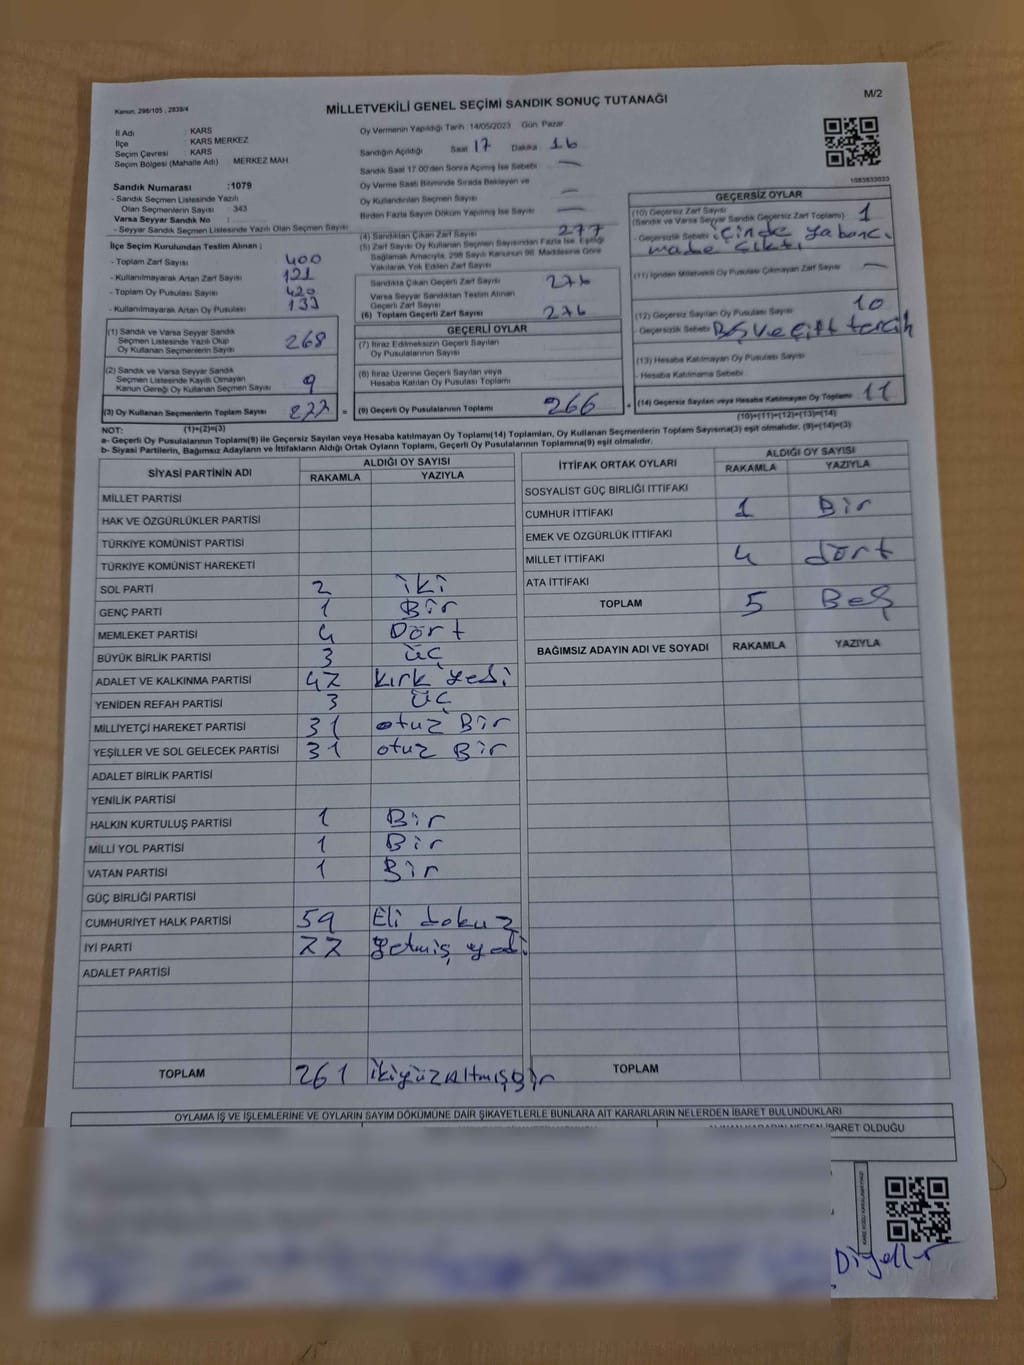 Kanun, 298/105 , 2839/4
MİLLETVEKİLİ GENEL SEÇİMİ SANDIK SONUÇ TUTANAĞI
M/2
İl Adı : KARS
İlçe : KARS MERKEZ
Seçim Çevresi : KARS
Seçim Bölgesi (Mahalle Adı) : MERKEZ MAH.
Sandık Numarası :1079
- Sandık Seçmen Listesinde Yazılı
Olan Seçmenlerin Sayısı : 343
Varsa Seyyar Sandık No :
- Seyyar Sandık Seçmen Listesinde Yazılı Olan Seçmen Sayısı
İlçe Seçim Kurulundan Teslim Alınan ;
- Toplam Zarf Sayısı 400
- Kullanılmayarak Artan Zarf Sayısı 121
- Toplam Oy Pusulası Sayısı 420
- Kullanılmayarak Artan Oy Pusulası 133
(1) Sandık ve Varsa Seyyar Sandık
Seçmen Listesinde Yazılı Olup
Oy Kullanan Seçmenlerin Sayısı 268
(2) Sandık ve Varsa Seyyar Sandık
Seçmen Listesinde Kayıtlı Olmayan
Kanun Gereği Oy Kullanan Seçmen Sayısı 9
(3) Oy Kullanan Seçmenlerin Toplam Sayısı 277 =
Oy Vermenin Yapıldığı Tarih :14/05/2023 Gün Pazar
Sandığın Açıldığı Saat 17 Dakika 16
Sandık Saat 17:00'den Sonra Açılmış İse Sebebi —
Oy Verme Saati Bitiminde Sırada Bekleyen ve
Oy Kullandırılan Seçmen Sayısı —
Birden Fazla Sayım Döküm Yapılmış İse Sayısı —
(4) Sandıktan Çıkan Zarf Sayısı 277
(5) Zarf Sayısı Oy Kullanan Seçmen Sayısından Fazla İse, Eşitliği
Sağlamak Amacıyla, 298 Sayılı Kanunun 98. Maddesine Göre
Yakılarak Yok Edilen Zarf Sayısı
Sandıkta Çıkan Geçerli Zarf Sayısı 276
Varsa Seyyar Sandıktan Teslim Alınan
Geçerli Zarf Sayısı
(6) Toplam Geçerli Zarf Sayısı 276
GEÇERLİ OYLAR
(7) İtiraz Edilmeksizin Geçerli Sayılan
Oy Pusulalarının Sayısı
(8) İtiraz Üzerine Geçerli Sayılan veya
Hesaba Katılan Oy Pusulası Toplamı
(9) Geçerli Oy Pusulalarının Toplamı 266 +
1083833033
GEÇERSİZ OYLAR
(10) Geçersiz Zarf Sayısı
(Sandık ve Varsa Seyyar Sandık Geçersiz Zarf Toplamı) 1
- Geçersizlik Sebebi : içinde yabancı
made çıktı
(11) İçinden Milletvekili Oy Pusulası Çıkmayan Zarf Sayısı —
(12) Geçersiz Sayılan Oy Pusulası Sayısı 10
- Geçersizlik Sebebi : Boş ve çift tercih
(13) Hesaba Katılmayan Oy Pusulası Sayısı
- Hesaba Katılmama Sebebi
(14) Geçersiz Sayılan veya Hesaba Katılmayan Oy Toplamı 11
NOT: (1)+(2)=(3)
(10)+(11)+(12)+(13)=(14)
a- Geçerli Oy Pusulalarının Toplamı(9) ile Geçersiz Sayılan veya Hesaba katılmayan Oy Toplamı(14) Toplamları, Oy Kullanan Seçmenlerin Toplam Sayısına(3) eşit olmalıdır. (9)+(14)=(3)
b- Siyasi Partilerin, Bağımsız Adayların ve İttifakların Aldığı Ortak Oyların Toplamı, Geçerli Oy Pusulalarının Toplamına(9) eşit olmalıdır.
SİYASİ PARTİNİN ADI ALDIĞI OY SAYISI
RAKAMLA YAZIYLA
MİLLET PARTİSİ
HAK VE ÖZGÜRLÜKLER PARTİSİ
TÜRKİYE KOMÜNİST PARTİSİ
TÜRKİYE KOMÜNİST HAREKETİ
SOL PARTİ 2 iki
GENÇ PARTİ 1 Bir
MEMLEKET PARTİSİ 4 Dört
BÜYÜK BİRLİK PARTİSİ 3 üç
ADALET VE KALKINMA PARTİSİ 47 kırk yedi
YENİDEN REFAH PARTİSİ 3 üç
MİLLİYETÇİ HAREKET PARTİSİ 31 otuz Bir
YEŞİLLER VE SOL GELECEK PARTİSİ 31 otuz Bir
ADALET BİRLİK PARTİSİ
YENİLİK PARTİSİ
HALKIN KURTULUŞ PARTİSİ 1 Bir
MİLLİ YOL PARTİSİ 1 Bir
VATAN PARTİSİ 1 Bir
GÜÇ BİRLİĞİ PARTİSİ
CUMHURİYET HALK PARTİSİ 59 Eli dokuz
İYİ PARTİ 77 yetmiş yedi
ADALET PARTİSİ
TOPLAM 261 ikiyüzaltmışBir
İTTİFAK ORTAK OYLARI ALDIĞI OY SAYISI
RAKAMLA YAZIYLA
SOSYALİST GÜÇ BİRLİĞİ İTTİFAKI
CUMHUR İTTİFAKI 1 Bir
EMEK VE ÖZGÜRLÜK İTTİFAKI
MİLLET İTTİFAKI 4 dört
ATA İTTİFAKI
TOPLAM 5 Beş
BAĞIMSIZ ADAYIN ADI VE SOYADI RAKAMLA YAZIYLA
TOPLAM
OYLAMA İŞ VE İŞLEMLERİNE VE OYLARIN SAYIM DÖKÜMÜNE DAİR ŞİKAYETLERLE BUNLARA AİT KARARLARIN NELERDEN İBARET BULUNDUKLARI
ALINAN KARARIN NEDEN İBARET OLDUĞU